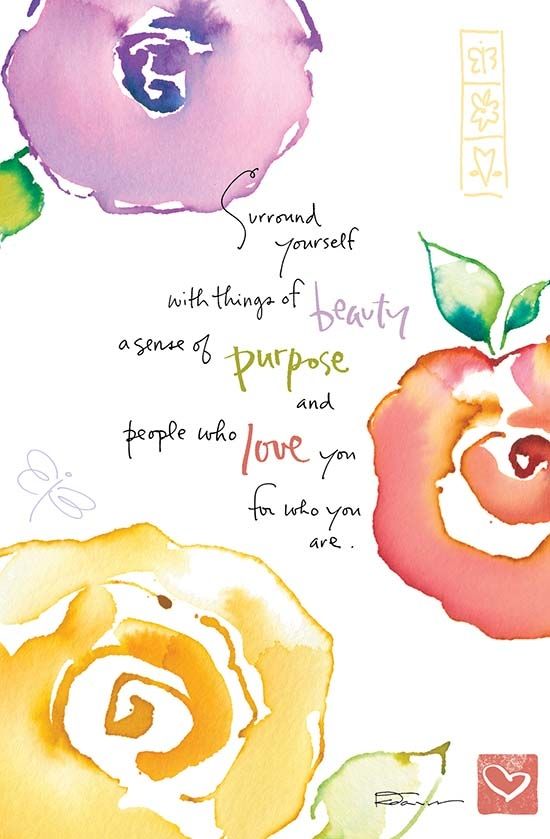 Surround
yourself
with things of beauty
a sense of purpose
and
people who love you
for who you
are.